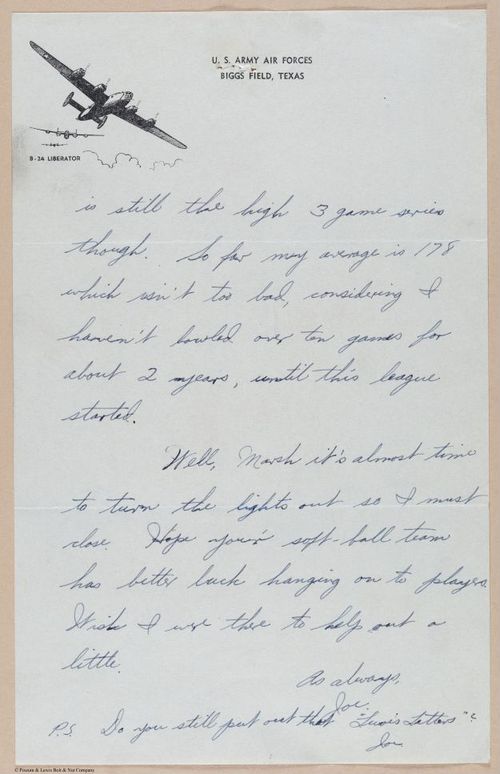 U. S. ARMY AIR FORCES
BIGGS FIELD, TEXAS
B-24 LIBERATOR
is still the high 3 game series
though. So far my average is 178
which isn't too bad, considering I
haven't bowled over ten games for
about 2 years, until this league
started.
Well, Marsh it's almost time
to turn the lights out so I must
close. Hope your soft ball team
has better luck hanging on to players.
Wish I were there to help out a
little.
As always,
Joe.
P.S. Do you still put out that "Lewis Letters"?
Joe.
© Pioneer & Lewis Bolt & Nut Company